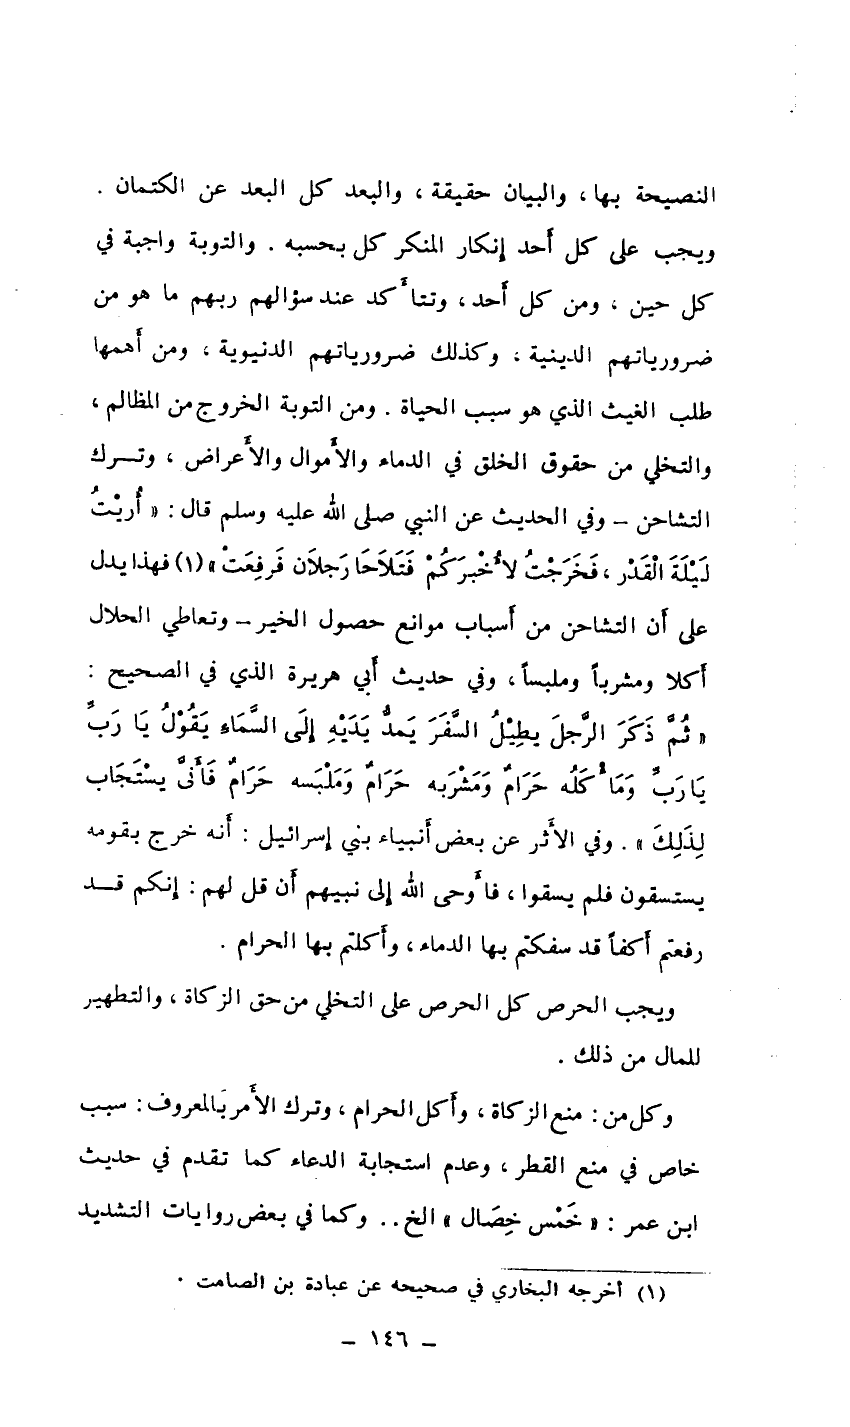 النصيحة بها ، والبيان حقيقة ، والبعد كل البعد عن الكتمان .
ويجب على كل أحد إنكار المنكر كل بحسبه . والتوبة واجبة في
كل حين ، ومن كل أحد ، وتتأكد عند سؤالهم ربهم ما هو من
ضرورياتهم الدينية ، وكذلك ضرورياتهم الدنيوية ، ومن أهمها
طلب الغيث الذي هو سبب الحياة . ومن التوبة الخروج من المظالم ،
والتخلي من حقوق الخلق في الدماء والأموال والأعراض ، وتـــرك
التشاحن – وفي الحديث عن النبي صلى الله عليه وسلم قال : « أُرِيْتُ
لَيْلَةَ الْقَدْر ، فَخَرَجْتُ لأُخْبرَكُمْ فَتَلَاحَا رَجلَان فَرفِعَتْ » (١) فهذا يدل
على أن التشاحن من أسباب موانع حصول الخير – وتعاطي الحلال
أكلا ومشرباً وملبساً ، وفي حديث أبي هريرة الذي في الصحيح :
« ثُمَّ ذَكَرَ الرَّجلَ يطِيْلُ السَّفَرَ يَمدُّ يَدَيْهِ إِلَى السَّمَاءِ يَقُوْلُ يَا رَبِّ
يَا رَبِّ وَمَأْكَلُه حَرَامٌ وَمَشْرَبه حَرَامٌ وَمَلْبَسه حَرَامٌ فَأَنَّى يسْتَجَاب
لِذَلِكَ » . وفي الأثر عن بعض أنبياء بني إسرائيل : أنه خرج بقومه
يستسقون فلم يسقوا ، فأوحى الله إلى نبيهم أن قل لهم : إنكم قـــد
رفعتم أكفاً قد سفكتم بها الدماء ، وأكلتم بها الحرام .
ويجب الحرص كل الحرص على التخلي من حق الزكاة ، والتطهير
للمال من ذلك .
وكل من : منع الزكاة ، وأكل الحرام ، وترك الأمر بالمعروف : سبب
خاص في منع القطر ، وعدم استجابة الدعاء كما تقدم في حديث
ابن عمر : « خَمْس خِصَال » الخ .. وكما في بعض روايات التشديد
(١) أخرجه البخاري في صحيحه عن عبادة بن الصامت .
– ١٤٦ –